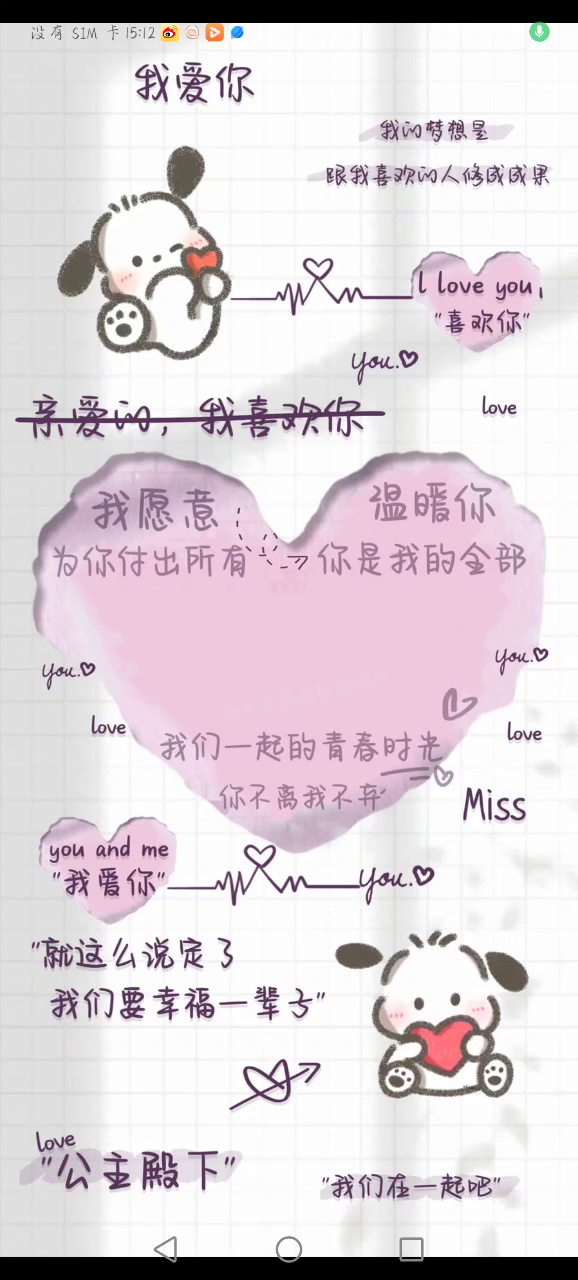 没有 SIM 卡 15:12
我爱你
我的梦想是
跟我喜欢的人修成成果
I love you,
"喜欢你"
you.
love
亲爱的，我喜欢你
我愿意
温暖你
为你付出所有
你是我的全部
you.
you.
love
love
我们一起的青春时光
你不离我不弃
Miss
you and me
"我爱你"
you.
"就这么说定了
我们要幸福一辈子"
love
"公主殿下"
"我们在一起吧"